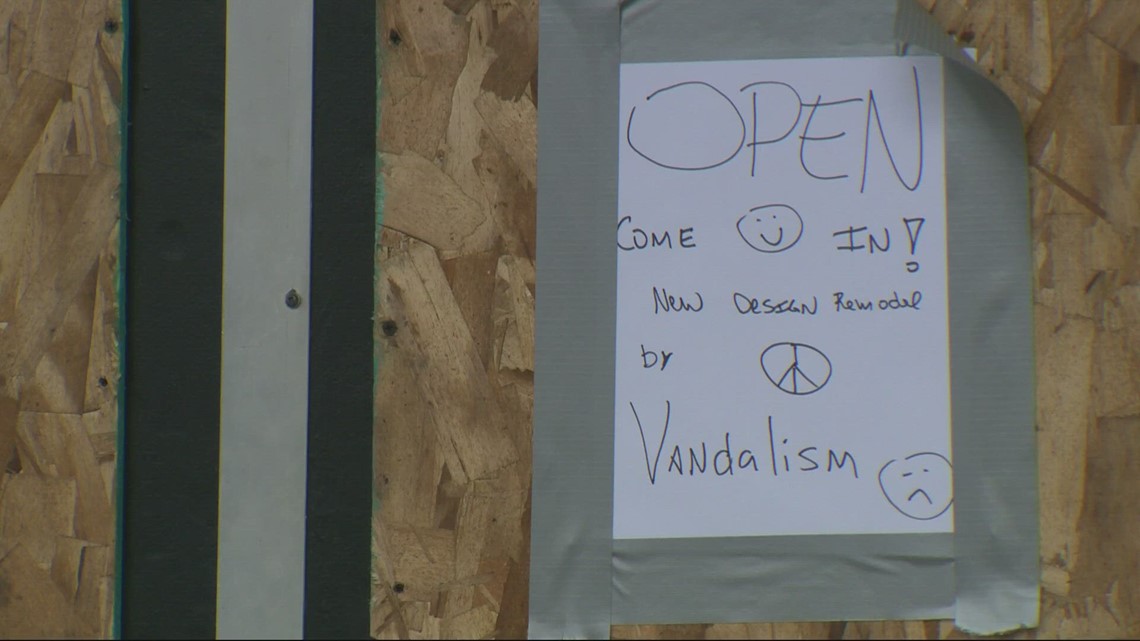 OPEN
COME IN!
New DESIGN Remodel
by
VANdalism